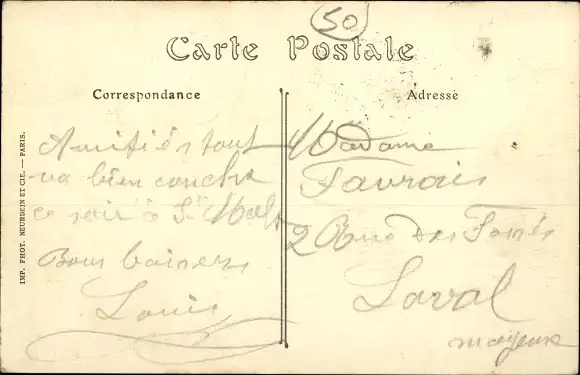 50
Carte Postale
Correspondance
Adresse
IMP. PHOT. NEURDEIN ET CIE. — PARIS.
Amitiés tout
va bien couche
ce soir à St Malo
Bons baisers
Louis
Madame
Favrais
2 Rue des Fossés
Laval
mayenne